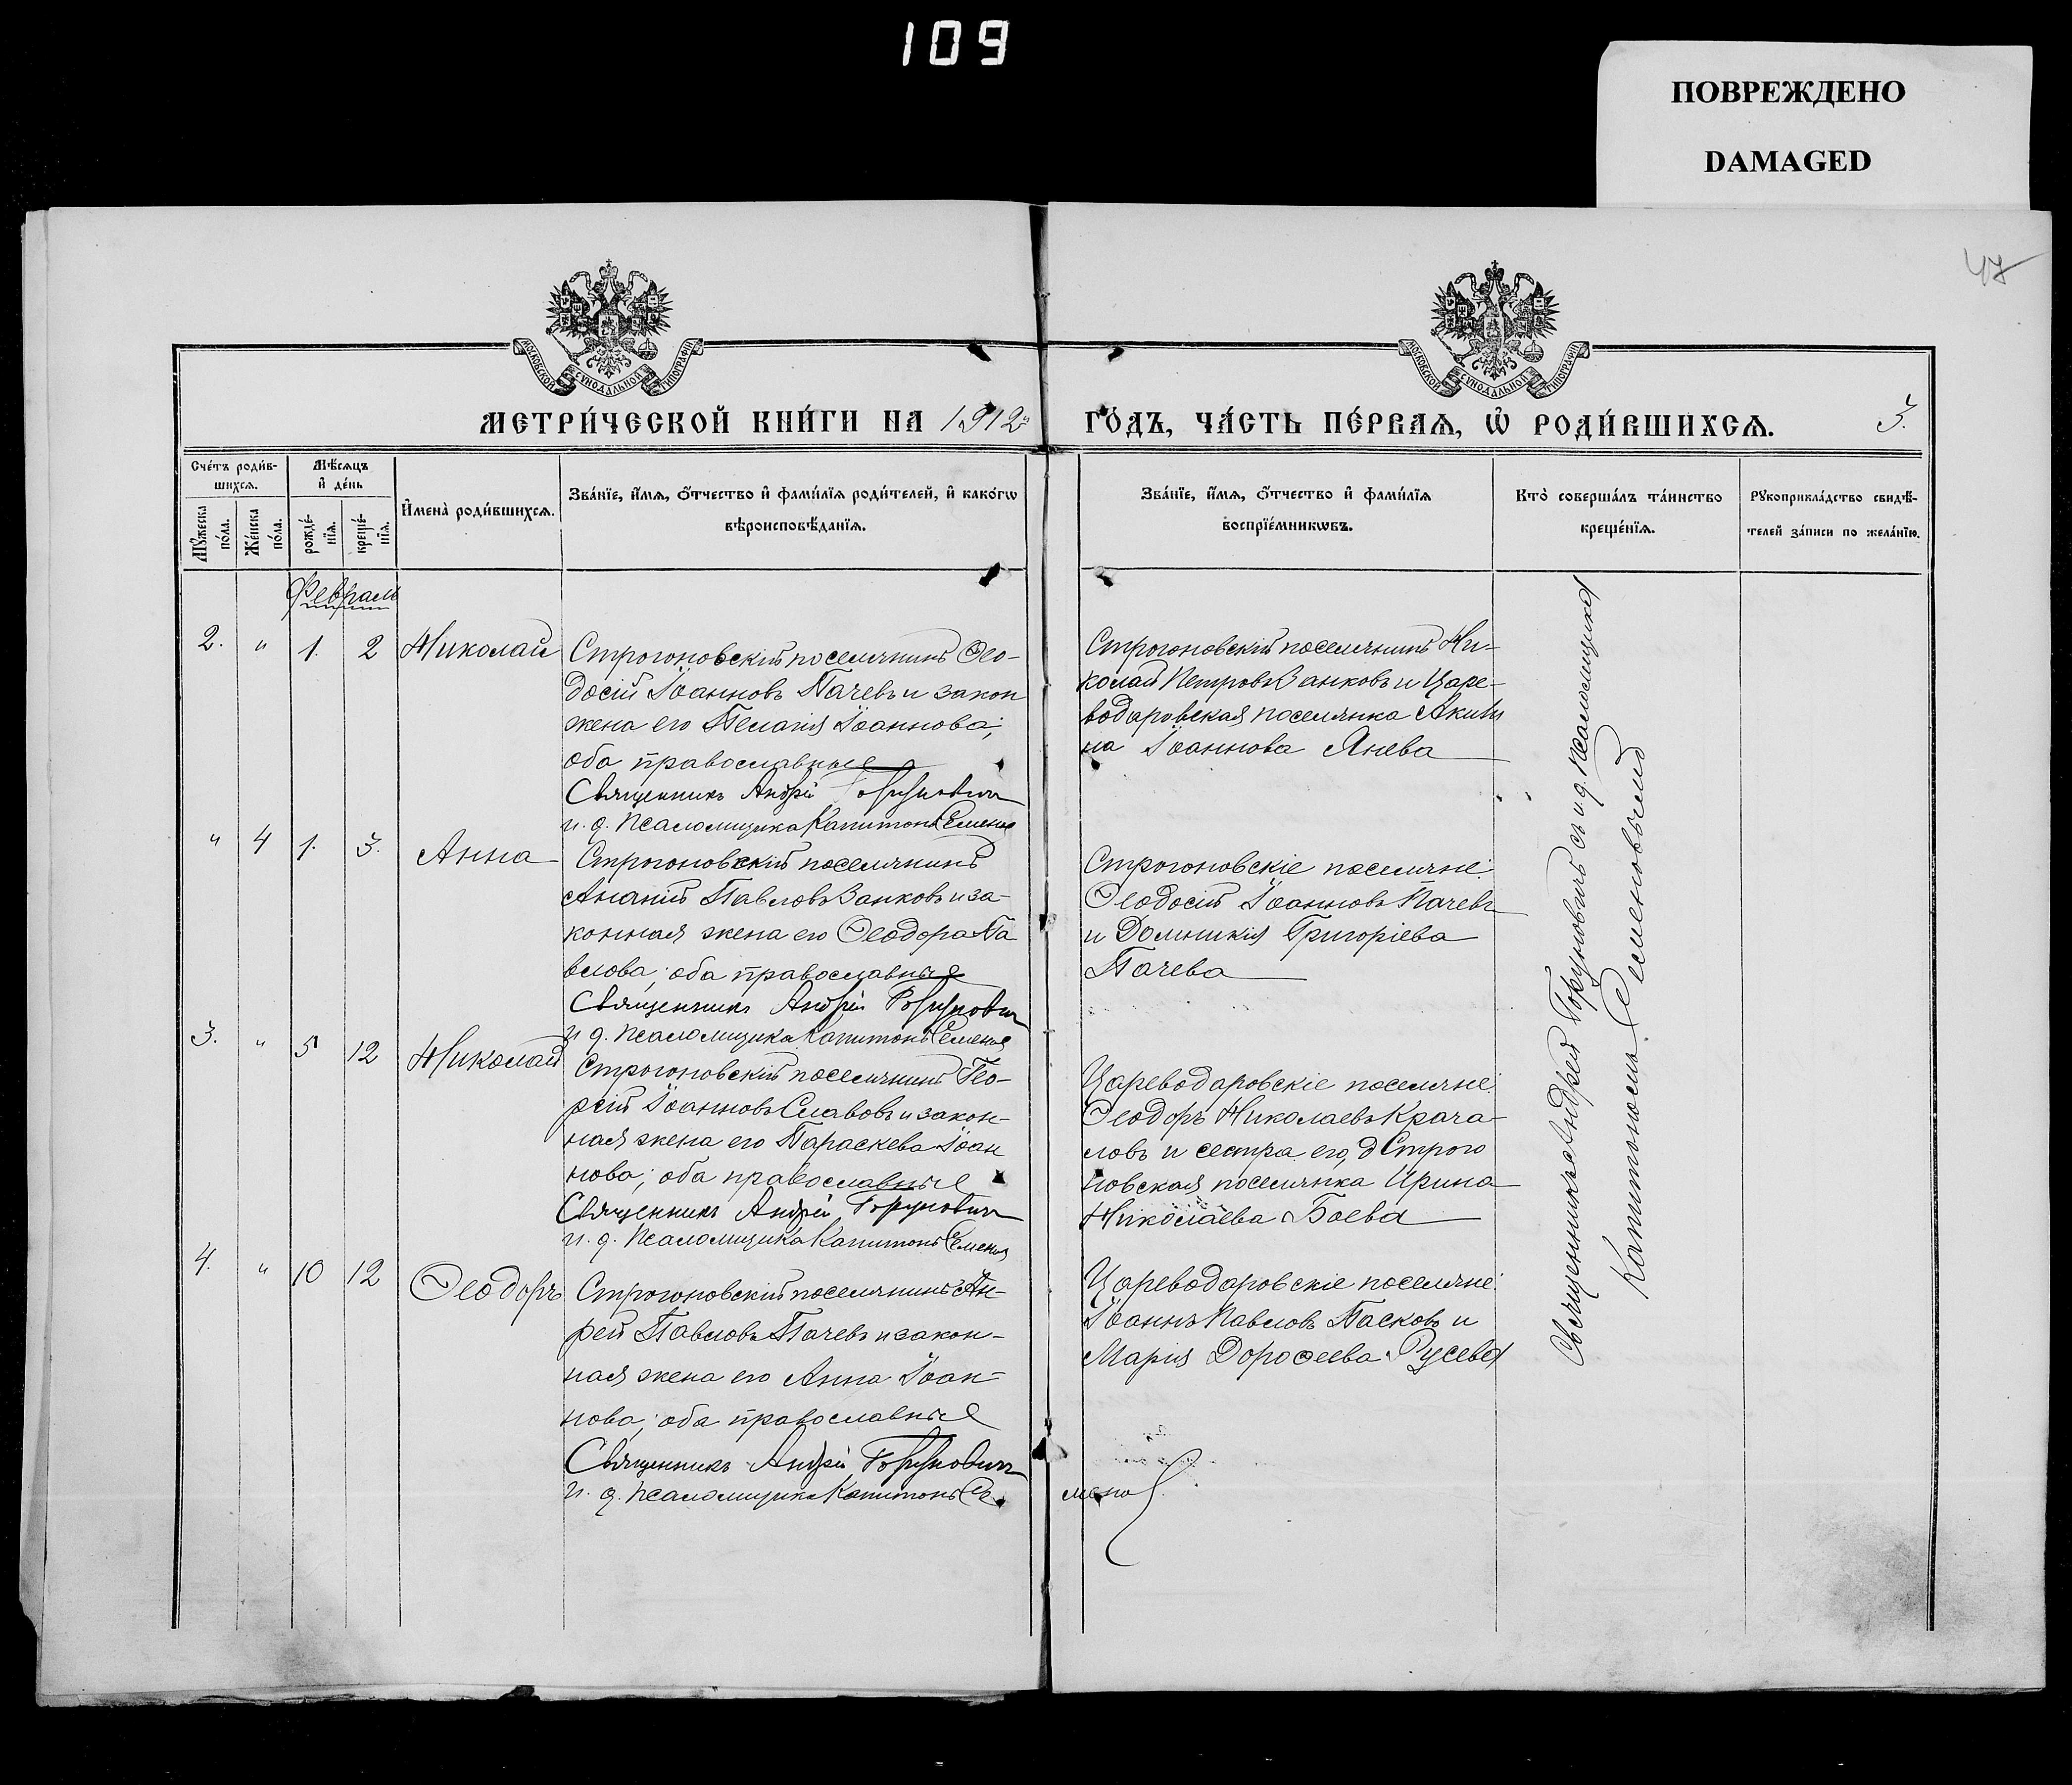 109
ПОВРЕЖДЕНО
DAMAGED
47
МОСКОВСКОЙ СѴНОДАЛЬНОЙ ТИПОГРАФІИ
МОСКОВСКОЙ СѴНОДАЛЬНОЙ ТИПОГРАФІИ
МЕТРИ́ЧЕСКОЙ КНИ́ГИ НА 1912 ГО́ДЪ, ЧА́СТЬ ПЕ́РВАѦ, Ѡ҆ РОДИ́ВШИХСѦ. 3.
Сче́тъ роди́в-
шихсѧ.
Мѣ́сѧцъ
и҆ де́нь
Мꙋ́жеска
по́ла.
Же́нска
по́ла.
рожде́-
нїѧ.
креще́-
нїѧ.
И҆мена̀ роди́вшихсѧ.
Зва́нїе, и҆́мѧ, ѻ҆́тчество и҆ фами́лїѧ роди́телей, и҆ како́гѡ
вѣроисповѣ́данїѧ.
Зва́нїе, и҆́мѧ, ѻ҆́тчество и҆ фами́лїѧ
воспрїе́мникѡвъ.
Кто̀ соверша́лъ та́инство
креще́нїѧ.
Рꙋкоприкла́дство свидѣ́-
телей за́писи по жела́нїю.
Февраль
2. " 1. 2 Николай
Строгоновскій поселянинъ Ѳео-
досій Іоанновъ Пачевъ и закон
жена его Пелагія Іоаннова;
оба православные
Священникъ Андрей Горуновичъ
и. д. псаломщика Капитонъ Семенов
Строгоновскій поселянинъ Ни-
колай Петровъ Занковъ и Царе-
водаровская поселянка Акили
на Іоаннова Янева
" 4 1. 3. Анна
Строгоновскій поселянинъ
Ананій Павловъ Занковъ и за-
конная жена его Ѳеодора Па
влова; оба православные
Священникъ Андрей Горуновичъ
и д. псаломщика Капитонъ Семенов
Строгоновскіе поселяне:
Ѳеодосій Іоанновъ Пачевъ
и Домникія Григоріева
Пачева
3. " 5 12 Николай
Строгоновскій поселянинъ Гео-
ргій Іоанновъ Славовъ и закон-
ная жена его Параскева Іоан
нова; оба православные
Священникъ Андрей Горуновичъ
и. д. псаломщика Капитонъ Семенов
Цареводаровскіе поселяне:
Ѳеодоръ Николаевъ Крача-
ловъ и сестра его, Строго
новская поселянка Ирина
Николаева Боева
4. " 10 12 Ѳеодоръ
Строгоновскій поселянинъ Ан-
рей Павловъ Пачевъ и закон-
ная жена его Анна Іоан-
нова; оба православные
Священникъ Андрей Горуновичъ
и. д. псаломщика Капитонъ Се
менов
Цареводаровскіе поселяне:
Іоаннъ Павловъ Пасковъ и
Марія Дороѳеева Русева
Священникъ Андрей Горуновичъ съ и д. псаломщика
Капитономъ Семеновымъ